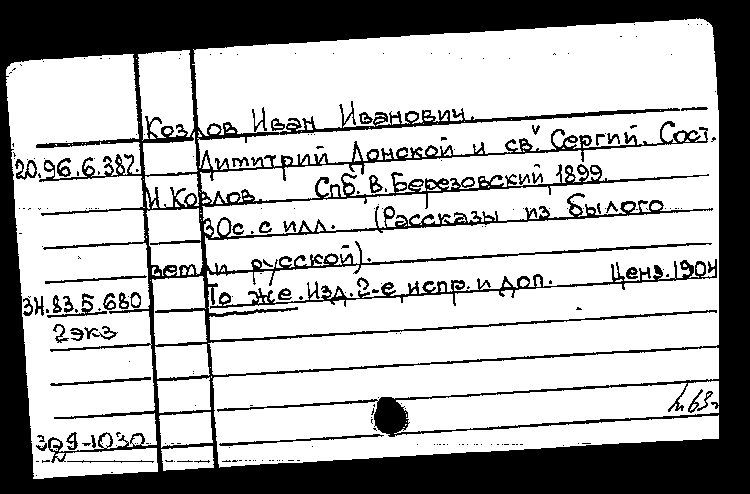 Козлов, Иван Иванович.
20.96.6.387. Димитрий Донской и св. Сергий. Сост.
И. Козлов. Спб, В. Березовский, 1899.
30с. с илл. (Рассказы из былого
земли русской).
34.83.5.680 То же. Изд. 2-е, испр. и доп. Ценз. 1904
2экз
309-1030